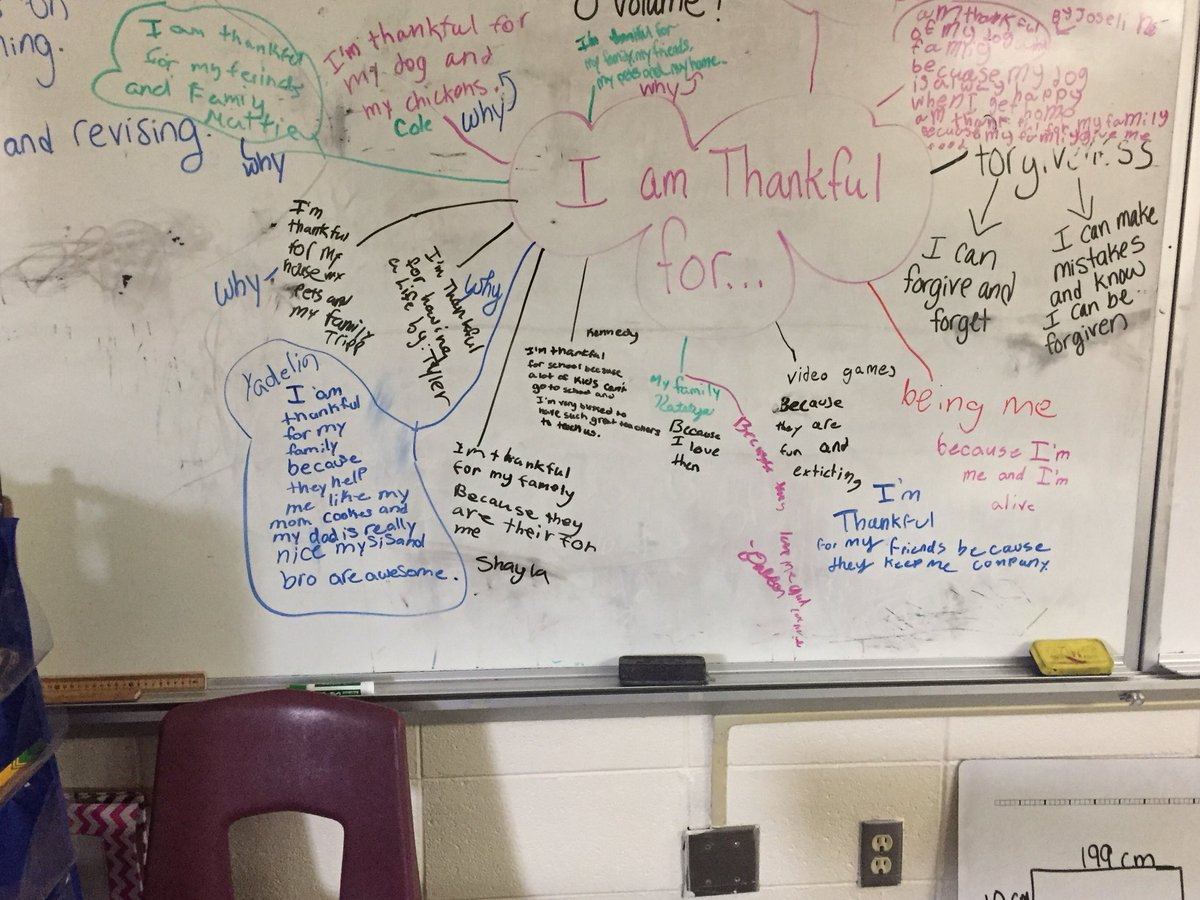 on
ning.
and revising.
I am thankful
for my feinds
and Family
Mattie
why
I'm thankful for
my dog and
my chickens.
Cole
why
volume!
I'm thankful for
my family, my friends,
my pets and my home.
why
am thankful
of my dog and
family
because my dog
is
when I get happy
am thank
my family
because my family give me
By Joseli
I am Thankful
for...
I can
forgive and
forget
I can make
mistakes
and know
I can be
forgiven
I'm
thankful
for my
house my
Pets and
my family
Tripp
why
I'm Thankful
for having
a life by: Tyler
why
Yadelin
I am
thankful
for my
family
because
they help
me like my
mom cookes and
my dad is really
nice my sis and
bro are awesome.
I'm thankful
for my famely
Because they
are their for
me
Shayla
Kennedy
I'm thankful
for school because
a lot of kids can't
go to school and
I'm very blessed to
have such great teachers
to teach us.
My family
Katelyn
Because
I love
then
Because they love me and
-Dalton
video games
Because
they are
fun and
exticting
being me
because I'm
me and I'm
alive
I'm
Thankful
for my friends because
they keep me company.
199 cm